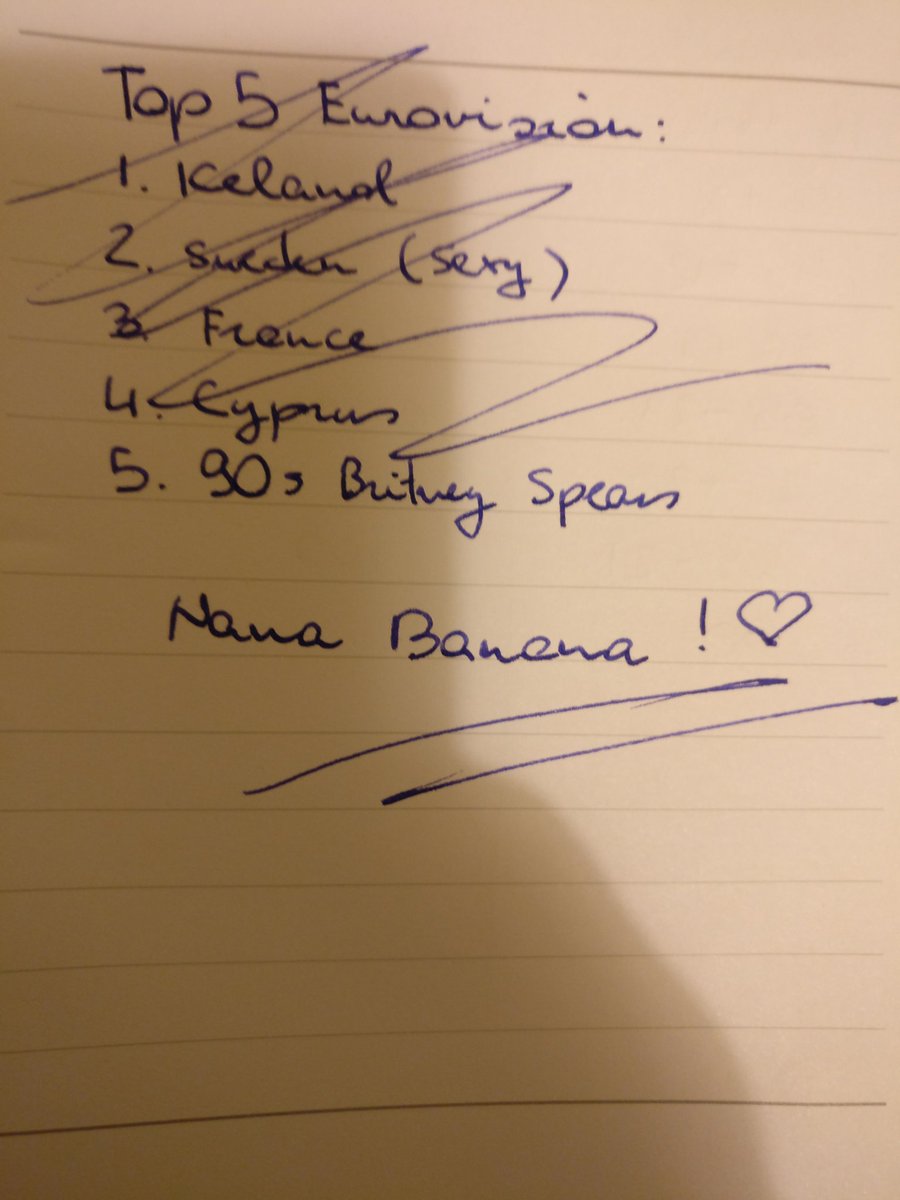 Top 5 Eurovision:
1. Iceland
2. Sweden (sexy)
3. France
4. Cyprus
5. 90s Britney Spears
Nana Banana ! ♡